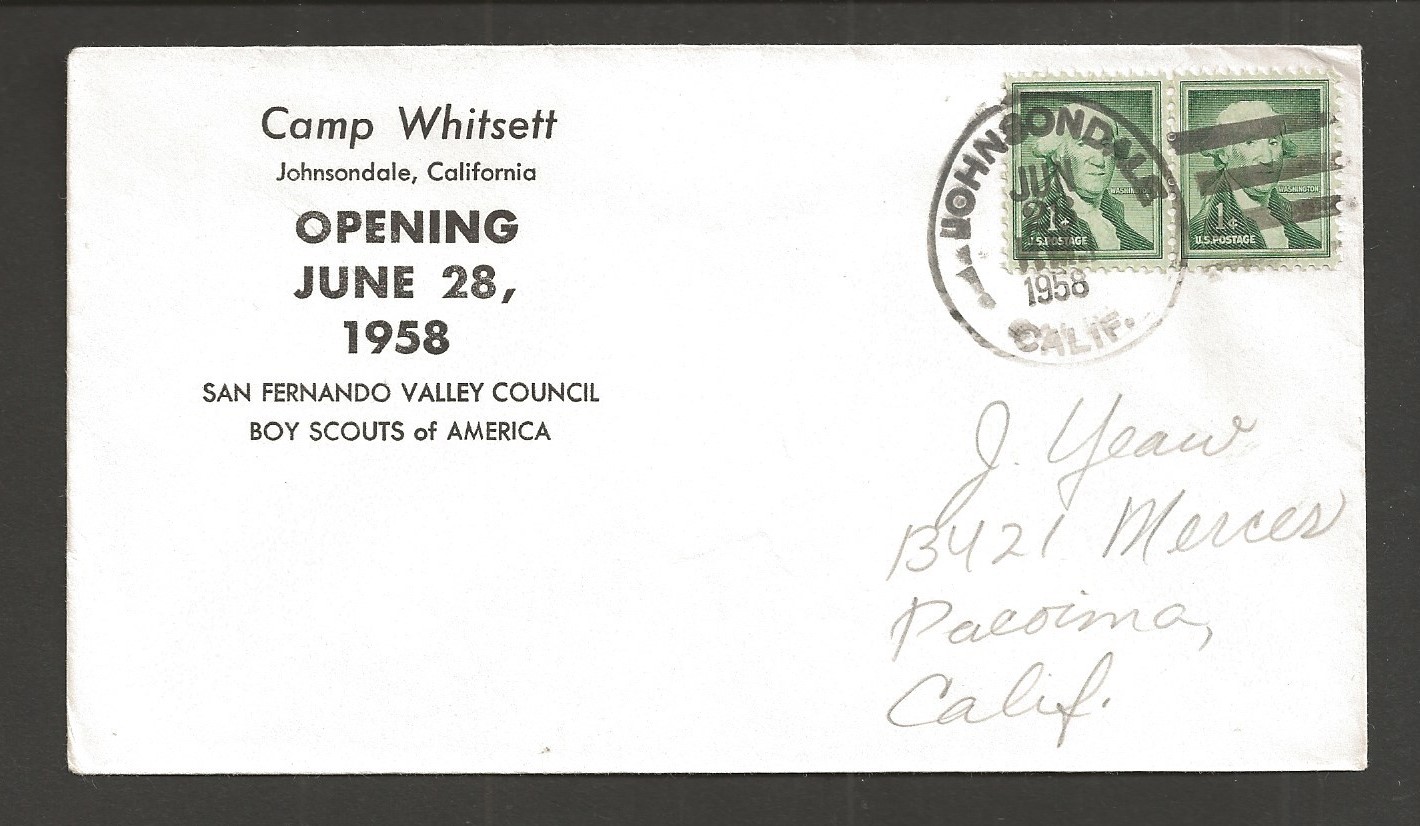 Camp Whitsett
Johnsondale, California
OPENING
JUNE 28,
1958
SAN FERNANDO VALLEY COUNCIL
BOY SCOUTS of AMERICA
JOHNSONDALE
JUN
28
1958
CALIF.
WASHINGTON
1¢
U.S. POSTAGE
WASHINGTON
1¢
U.S. POSTAGE
J. Yeaw
13421 Mercer
Pacoima,
Calif.